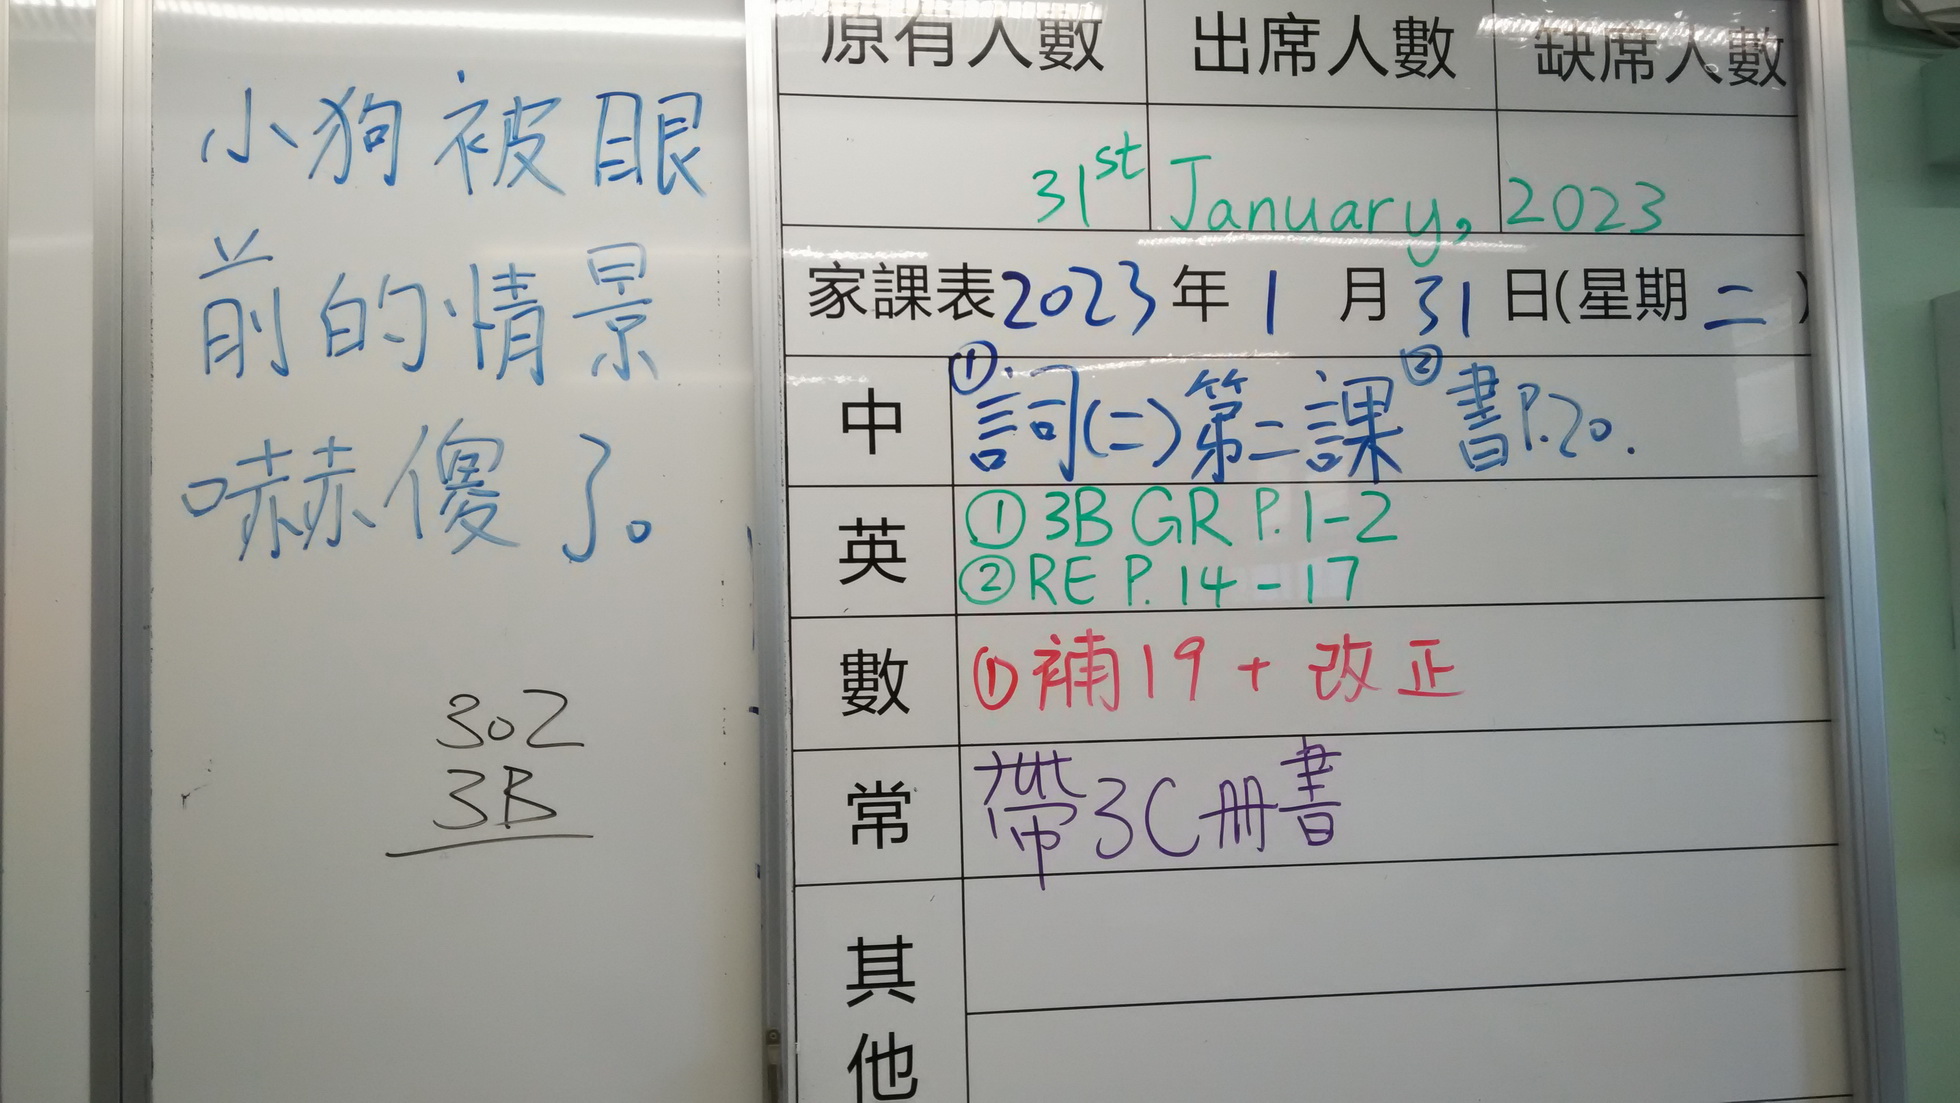 小狗被眼
前的情景
嚇傻了。
302
3B
原有人數 出席人數 缺席人數
31st January, 2023
家課表2023年1月31日(星期二)
中 ①詞(二)第二課 ②書P.20.
英 ①3B GR P.1-2
②RE P.14-17
數 ①補19+改正
常 帶3C冊書
其
他